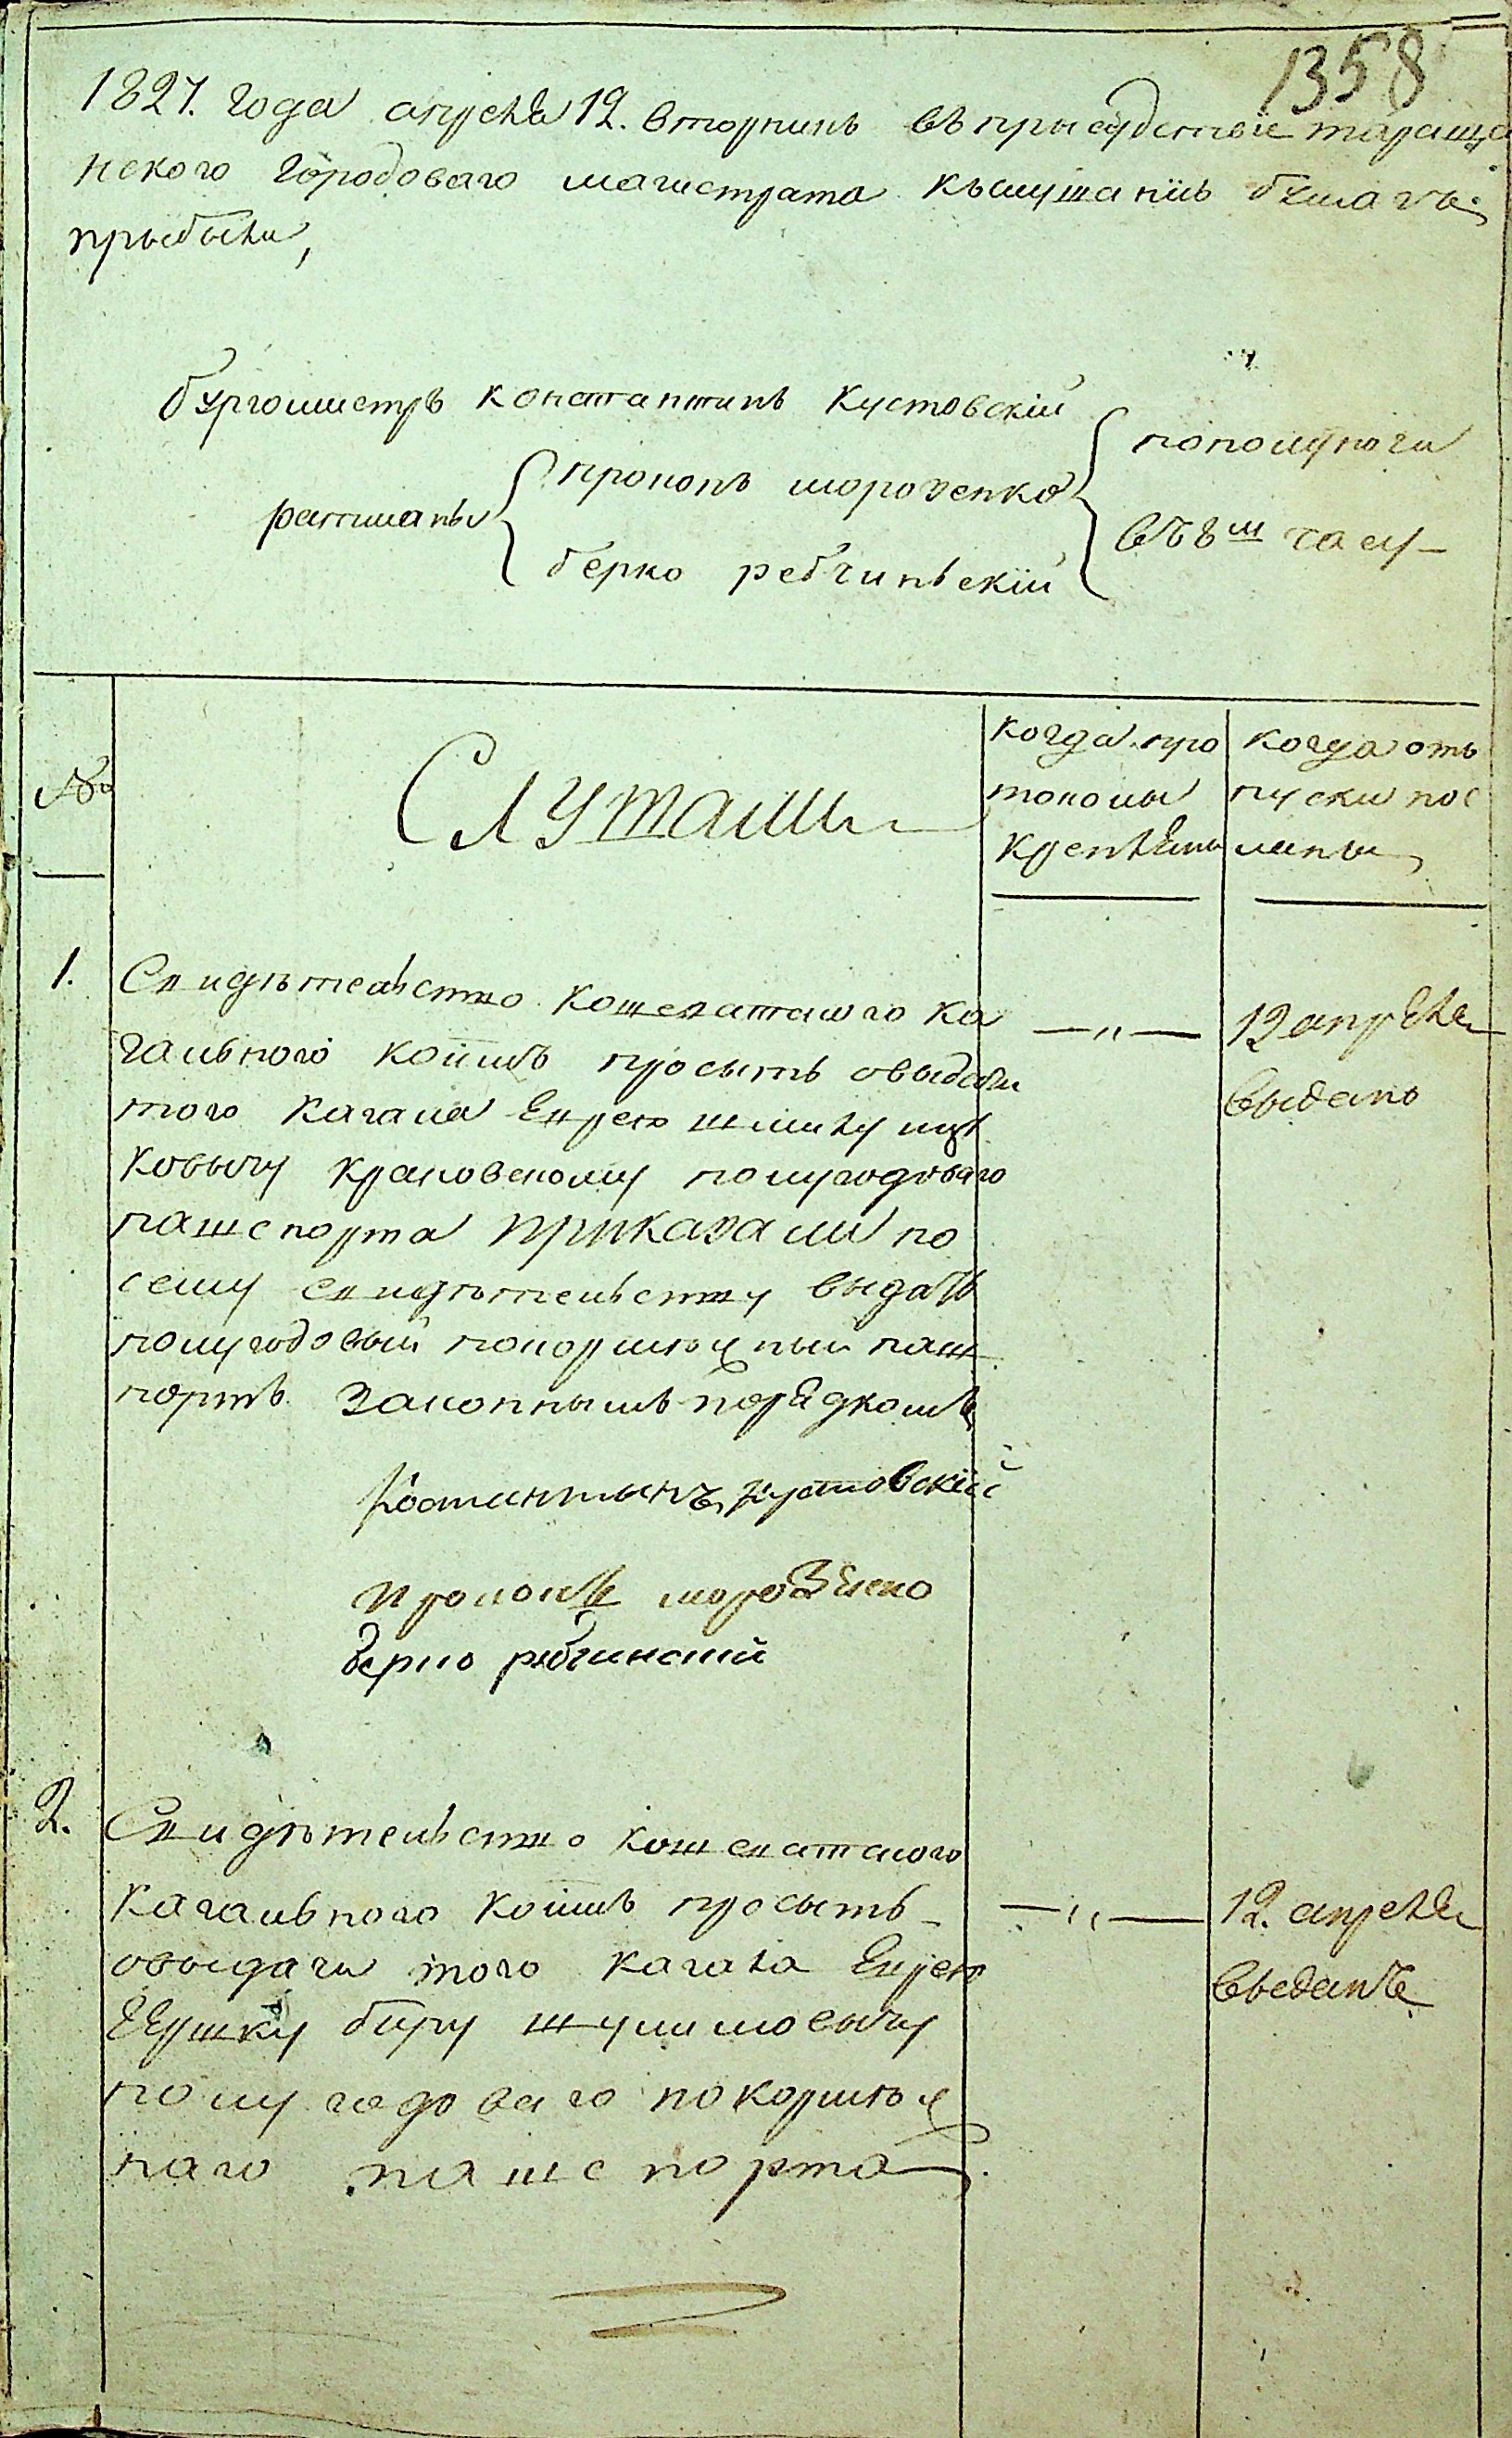 1358
1827. года апреля 12. вторникъ въ прысудствіе тараща
нского городоваго магистрата къ слушанію бумагъ
прыбыли,
бургомистръ константинъ кустовскій
ратманы
прокопъ морозенко
берко ребчинъскій
пополуночи
въ 8ш часу
№
Слушали
когда про
токолы
крепляны
когда отъ
пуски пос
ланы
1.
Свидѣтельство кошеватского ка
гального просытъ о выдачи
того кагала Еврею шмилу
ковычу краковскому полугодоваго
пашспорта приказали по
сему свидѣтельству выдать
полугодовый покормежный паш
портъ законнымъ порядкомъ
—„—
12 апреля
выданъ
Костантынъ Кустовскій
Прокопъ морозенко
берко ребчинский
2.
Свидѣтельство кошеватского
кагального просытъ
о выдачи того кагала Еврею
Гершку беру шулимовычу
полугодоваго покормеж
наго пашспорта
—„—
12. апреля
выданъ